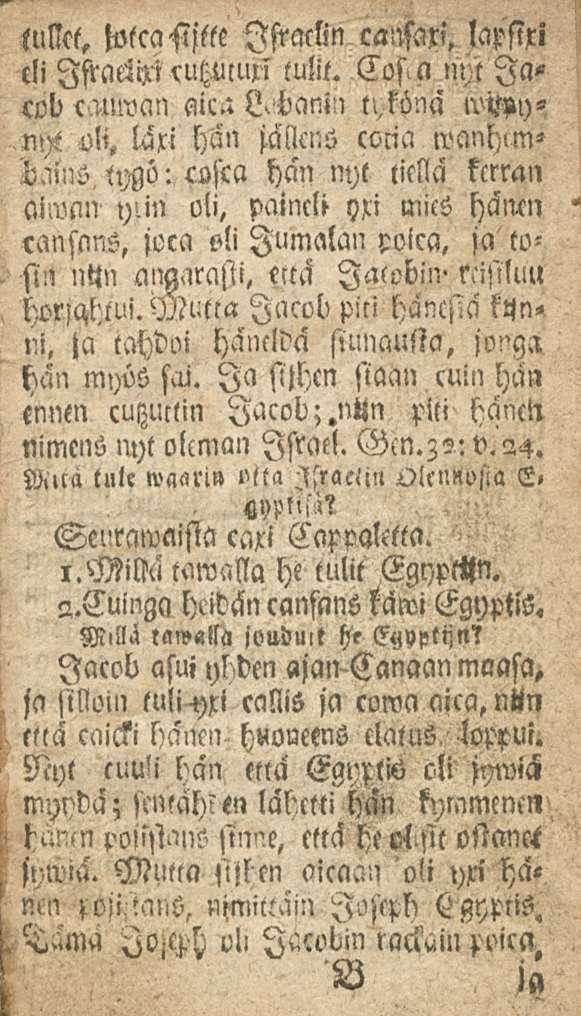 tullet, jotca sijtte Israelin cansaxi, lapsixi
eli Israelixi cutzutuxi tulit. Cosca nyt Ja⸗
cob cauwan aica Labanin tykönä wijpy⸗
nyt oli, läxi hän jällens cotia wanhem⸗
bains tygö: cosca hän nyt tiellä kerran
aiwan yxin oli, paineli yxi mies hänen
cansans, joca oli Jumalan poica, ja to⸗
sin nijn angarasti, että Jacobin reisiluu
horjahtui. Mutta Jacob piti hänestä kijn⸗
ni, ja tahdoi häneldä siunausta, jonga
hän myös sai. Ja sijhen siaan cuin hän
ennen cutzuttin Jacob; nijn piti hänen
nimens nyt oleman Israel. Gen. 32: v. 24.
Mitä tule waarin otta Israelin Olennosta E⸗
gyptisä?
Seurawaista caxi Cappaletta.
1. Millä tawalla he tulit Egyptijn.
2. Cuinga heidän cansans käwi Egyptis.
Millä tawalla jouduit he Egyptijn?
Jacob asui yhden ajan Canaan maasa,
ja silloin tuli yxi callis ja cowa aica, nijn
että caicki hänen huoneens elatus loppui.
Nyt cuuli hän, että Egyptis oli jywiä
myydä; sentähden lähetti hän kymmenen
hänen poijistans sinne, että he olisit ostanet
jywiä. Mutta sijhen aicaan oli yxi hä⸗
nen pojistans, nimittäin Joseph Egyptis.
Tämä Joseph oli Jacobin rackain poica,
B ja